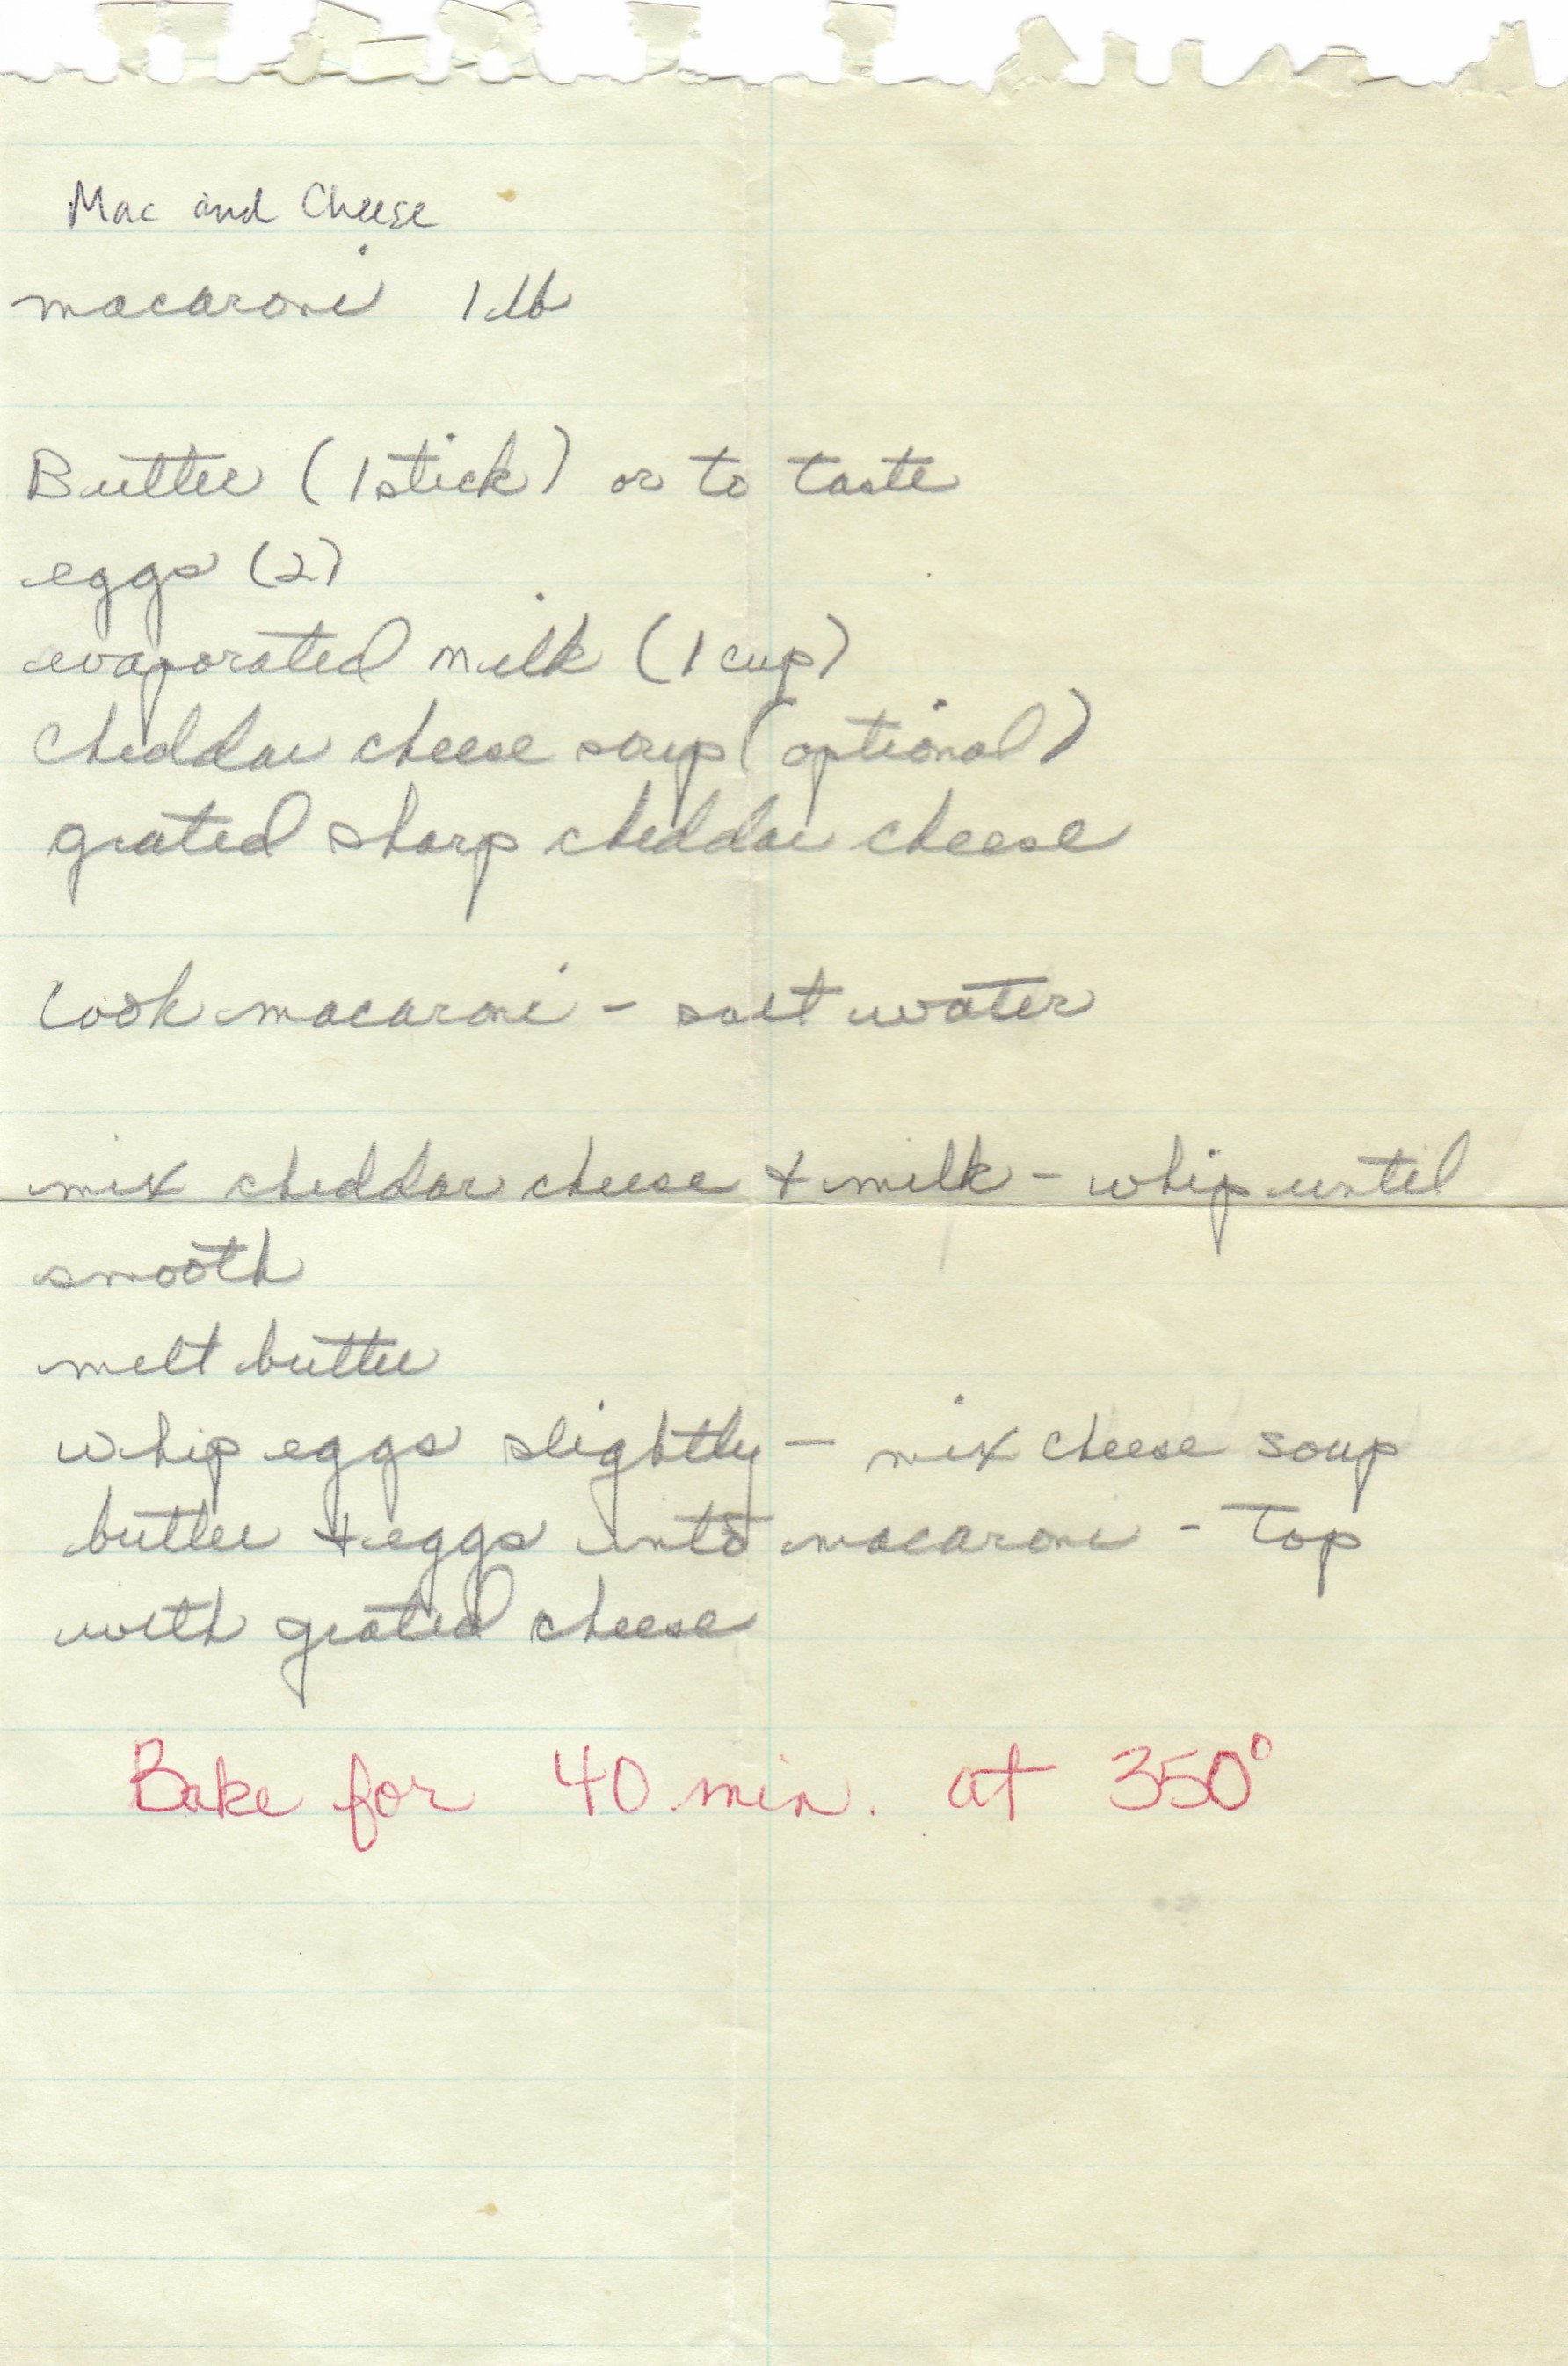 Mac and Cheese
macaroni 1 lb
Butter (1 stick) or to taste
eggs (2)
evaporated milk (1 cup)
cheddar cheese soup (optional)
grated sharp cheddar cheese
Cook macaroni - salt water
mix cheddar cheese + milk - whip until
smooth
melt butter
whip eggs slightly - mix cheese soup
butter + eggs into macaroni - Top
with grated cheese
Bake for 40 min. at 350°